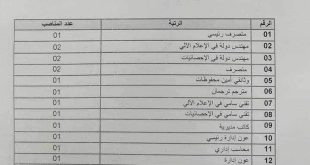 الرقم الرتبة عدد المناصب
01 متصرف رئيسي 01
02 مهندس دولة في الإعلام الآلي 02
03 مهندس دولة في الإحصائيات 02
04 متصرف 02
05 وثائقي أمين محفوظات 01
06 مترجم ترجمان 01
07 تقني سامي في الإعلام الآلي 01
08 تقني سامي في الإحصائيات 01
09 كاتب مديرية 01
10 عون إدارة رئيسي 01
11 محاسب إداري 01
12 عون إدارة 01